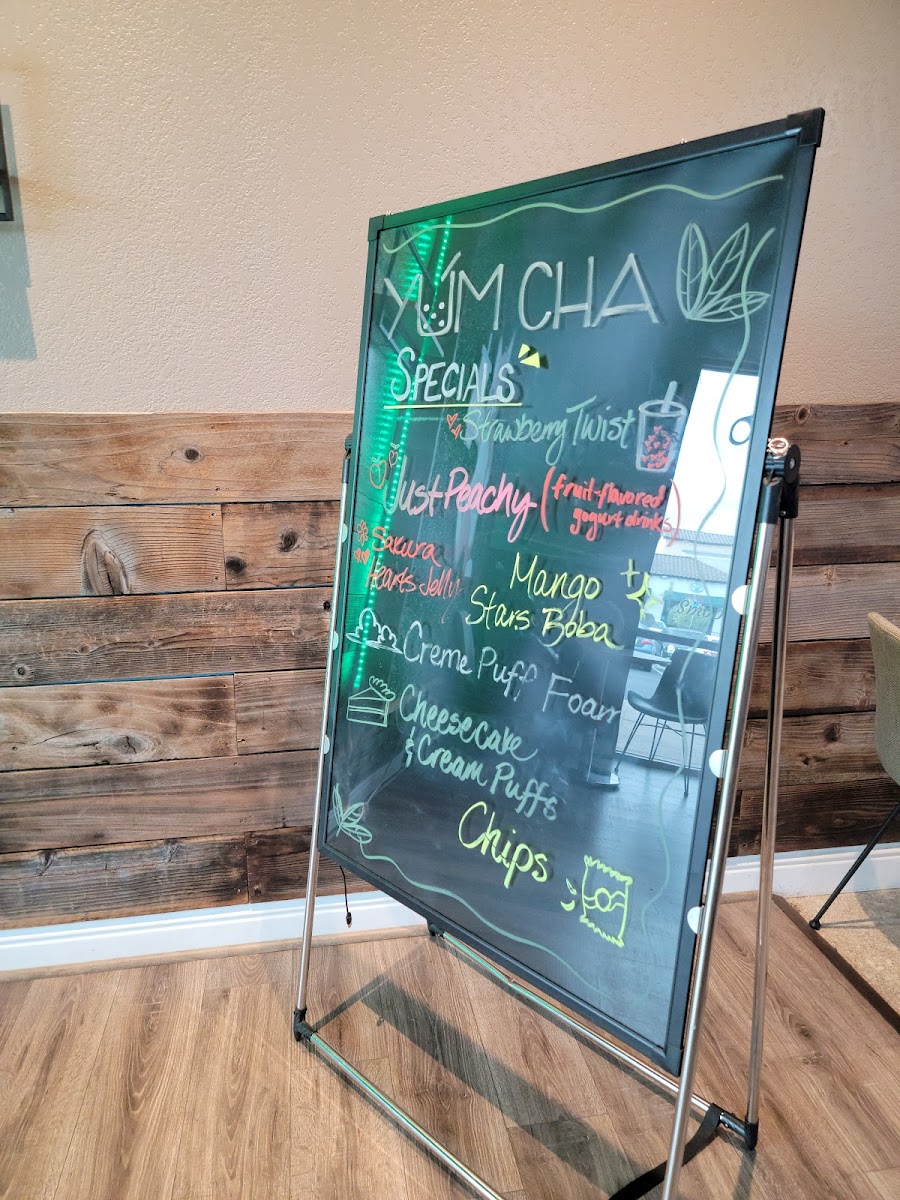 YUM CHA
SPECIALS
Strawberry Twist
Just Peachy (fruit-flavored
yogurt drinks)
Sakura
Hearts Jelly
Mango
Stars Boba
Creme Puff Foam
Cheesecake
& Cream Puffs
Chips